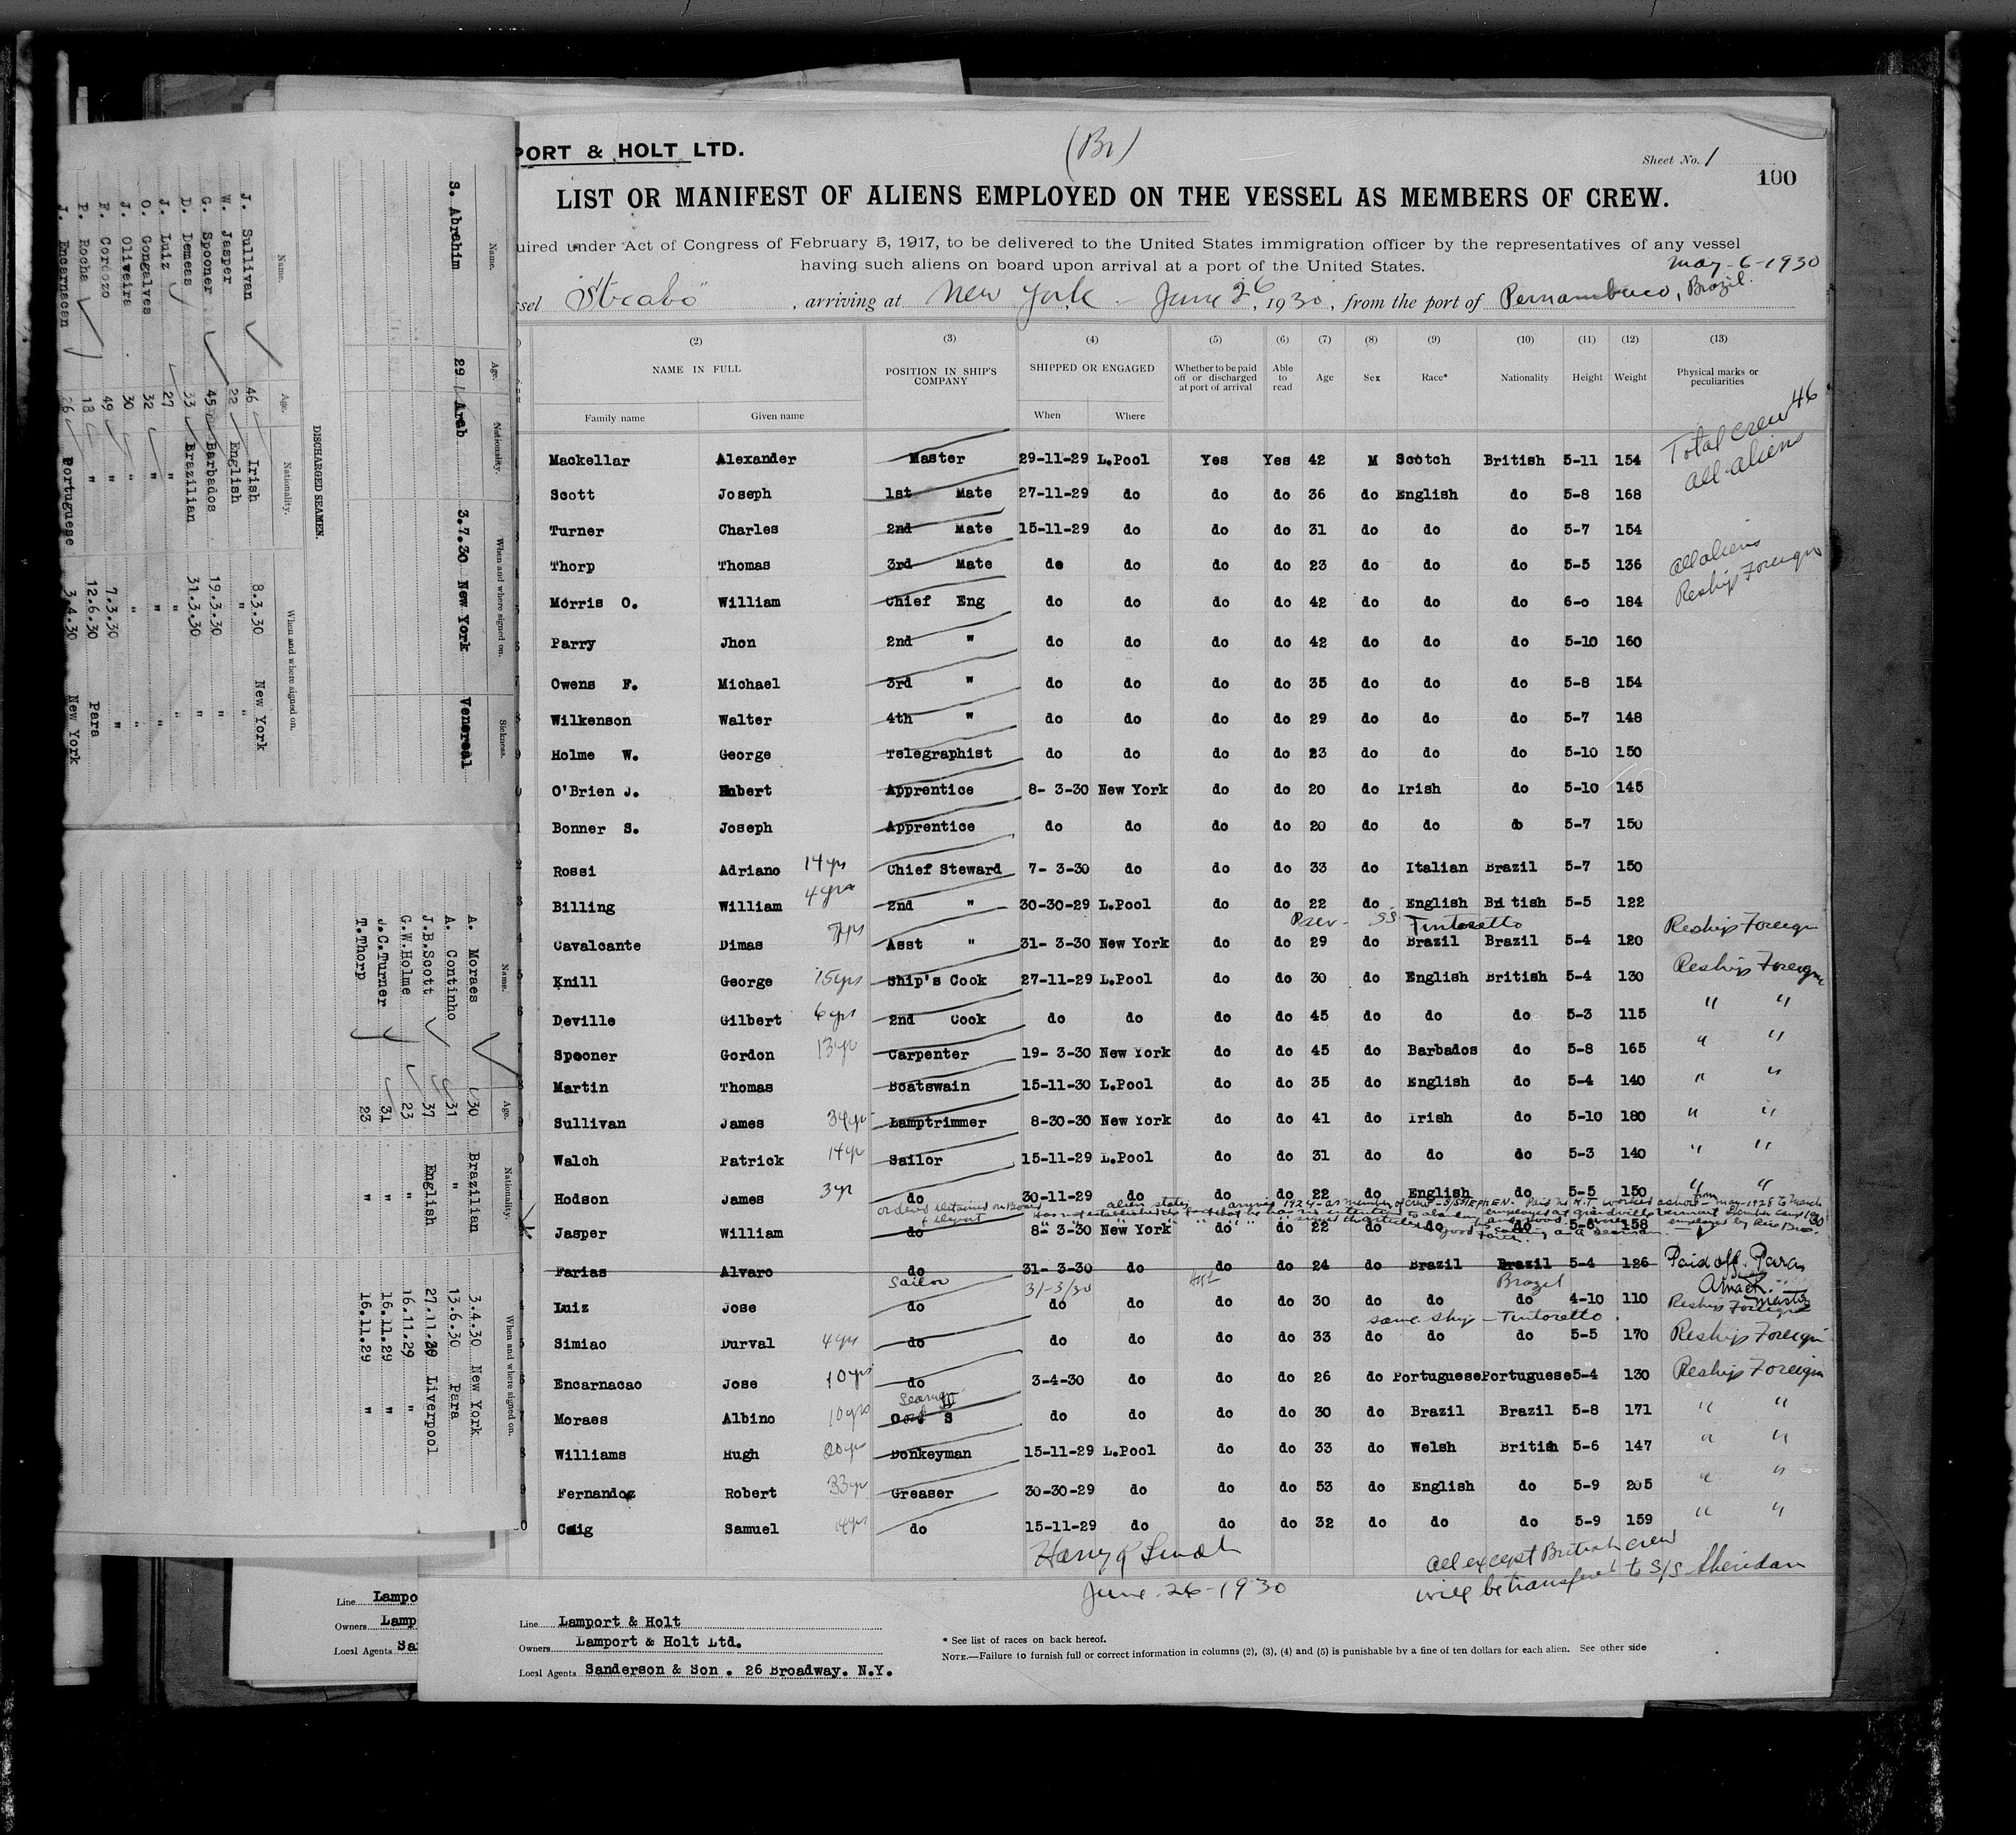 PORT & HOLT LTD.
(Br)
Sheet No. 1
100
LIST OR MANIFEST OF ALIENS EMPLOYED ON THE VESSEL AS MEMBERS OF CREW.
uired under Act of Congress of February 5, 1917, to be delivered to the United States immigration officer by the representatives of any vessel
having such aliens on board upon arrival at a port of the United States.
May-6-1930
ssel "Strabo" , arriving at New York - June 26, 1930, from the port of Pernambuco, Brazil.
(2) (3) (4) (5) (6) (7) (8) (9) (10) (11) (12) (13)
NAME IN FULL POSITION IN SHIP'S COMPANY SHIPPED OR ENGAGED Whether to be paid off or discharged at port of arrival Able to read Age Sex Race* Nationality Height Weight Physical marks or peculiarities
Family name Given name When Where
Total crew 46
all aliens
Mackellar Alexander Master 29-11-29 L.Pool Yes Yes 42 M Scotch British 5-11 154
Scott Joseph 1st Mate 27-11-29 do do do 36 do English do 5-8 168
Turner Charles 2nd Mate 15-11-29 do do do 31 do do do 5-7 154
Thorp Thomas 3rd Mate do do do do 23 do do do 5-5 136 all aliens
Reship Foreign
Morris O. William Chief Eng do do do do 42 do do do 6-0 184
Parry Jhon 2nd " do do do do 42 do do do 5-10 160
Owens F. Michael 3rd " do do do do 35 do do do 5-8 154
Wilkenson Walter 4th " do do do do 29 do do do 5-7 148
Holme W. George Telegraphist do do do do 23 do do do 5-10 150
O'Brien J. Hubert Apprentice 8- 3-30 New York do do 20 do Irish do 5-10 145
Bonner S. Joseph Apprentice do do do do 20 do do do 5-7 150
Rossi Adriano 14 yrs Chief Steward 7- 3-30 do do do 33 do Italian Brazil 5-7 150
Billing William 4 yrs 2nd " 30-30-29 L.Pool do do 22 do English British 5-5 122
Prev- SS Tintoretto
Cavalcante Dimas 7 yrs Asst " 31- 3-30 New York do do 29 do Brazil Brazil 5-4 120 Reship Foreign
Knill George 15 yrs Ship's Cook 27-11-29 L.Pool do do 30 do English British 5-4 130 Reship Foreign
Deville Gilbert 6 yrs 2nd Cook do do do do 45 do do do 5-3 115 " "
Spooner Gordon 13 yr Carpenter 19- 3-30 New York do do 45 do Barbados do 5-8 165 " "
Martin Thomas Boatswain 15-11-30 L.Pool do do 35 do English do 5-4 140 " "
Sullivan James 34 yr Lamptrimmer 8-30-30 New York do do 41 do Irish do 5-10 180 " "
Walch Patrick 14 yr Sailor 15-11-29 L.Pool do do 31 do do do 5-3 140 " "
Hodson James 3 yr do 30-11-29 do do do 22 do English do 5-5 150 " "
ordered detained on Board & deport
Jasper William do 8- 3-30 New York do do 22 do do do 5-6 158
Farias Alvaro do 31- 3-30 do do do 24 do Brazil Brazil 5-4 126 Paid off Para
Sailor 31-3/30 Brazil
Luiz Jose do do do do do 30 do do do 4-10 110 Reship Foreign
same ship - Tintoretto
Simiao Durval 4 yrs do do do do do 33 do do do 5-5 170 Reship Foreign
Encarnacao Jose 10 yrs do 3-4-30 do do do 26 do Portuguese Portuguese 5-4 130 Reship Foreign
Moraes Albino 10 yrs O. S do do do do 30 do Brazil Brazil 5-8 171 " "
Williams Hugh 20 yr Donkeyman 15-11-29 L.Pool do do 33 do Welsh British 5-6 147 " "
Fernandoz Robert 33 yr Greaser 30-30-29 do do do 53 do English do 5-9 205 " "
Caig Samuel 14 yrs do 15-11-29 do do do 32 do do do 5-9 159 " "
June 26-1930
all except British crew
will be transferred to S/S Sheridan
Line Lamport & Holt
Owners Lamport & Holt Ltd.
Local Agents Sanderson & Son . 26 Broadway. N.Y.
* See list of races on back hereof.
NOTE.—Failure to furnish full or correct information in columns (2), (3), (4) and (5) is punishable by a fine of ten dollars for each alien. See other side
Line Lampo
Owners Lamp
Local Agents Sa
Name. Age. Nationality. When and where signed on. Sickness.
S. Abrahim 29 Arab 3.7.30 New York Venereal
DISCHARGED SEAMEN.
Name. Age. Nationality. When and where signed on.
J. Sullivan 46 Irish 8.3.30 New York
W. Jasper 22 English " "
G. Spooner 45 Barbados 19.3.30 "
D. Demeas 33 Brazilian 31.3.30 "
J. Luiz 27 " " "
O. Gongalves 32 " " "
J. Oliveira 30 " " "
F. Cordozo 49 " 7.3.30 "
P. Rocha 18 " 12.6.30 Para
J. Encarnacan 26 Portuguese 3.4.30 New York
Name. Age. Nationality. When and where signed on.
A. Moraes 30 Brazilian 3.4.30 New York
A. Continho 31 " 13.6.30 Para
J.B.Scott 37 English 27.11.29 Liverpool
G.W.Holme 23 " 16.11.29 "
J.C.Turner 31 " 16.11.29 "
T.Thorp 23 " 16.11.29 "